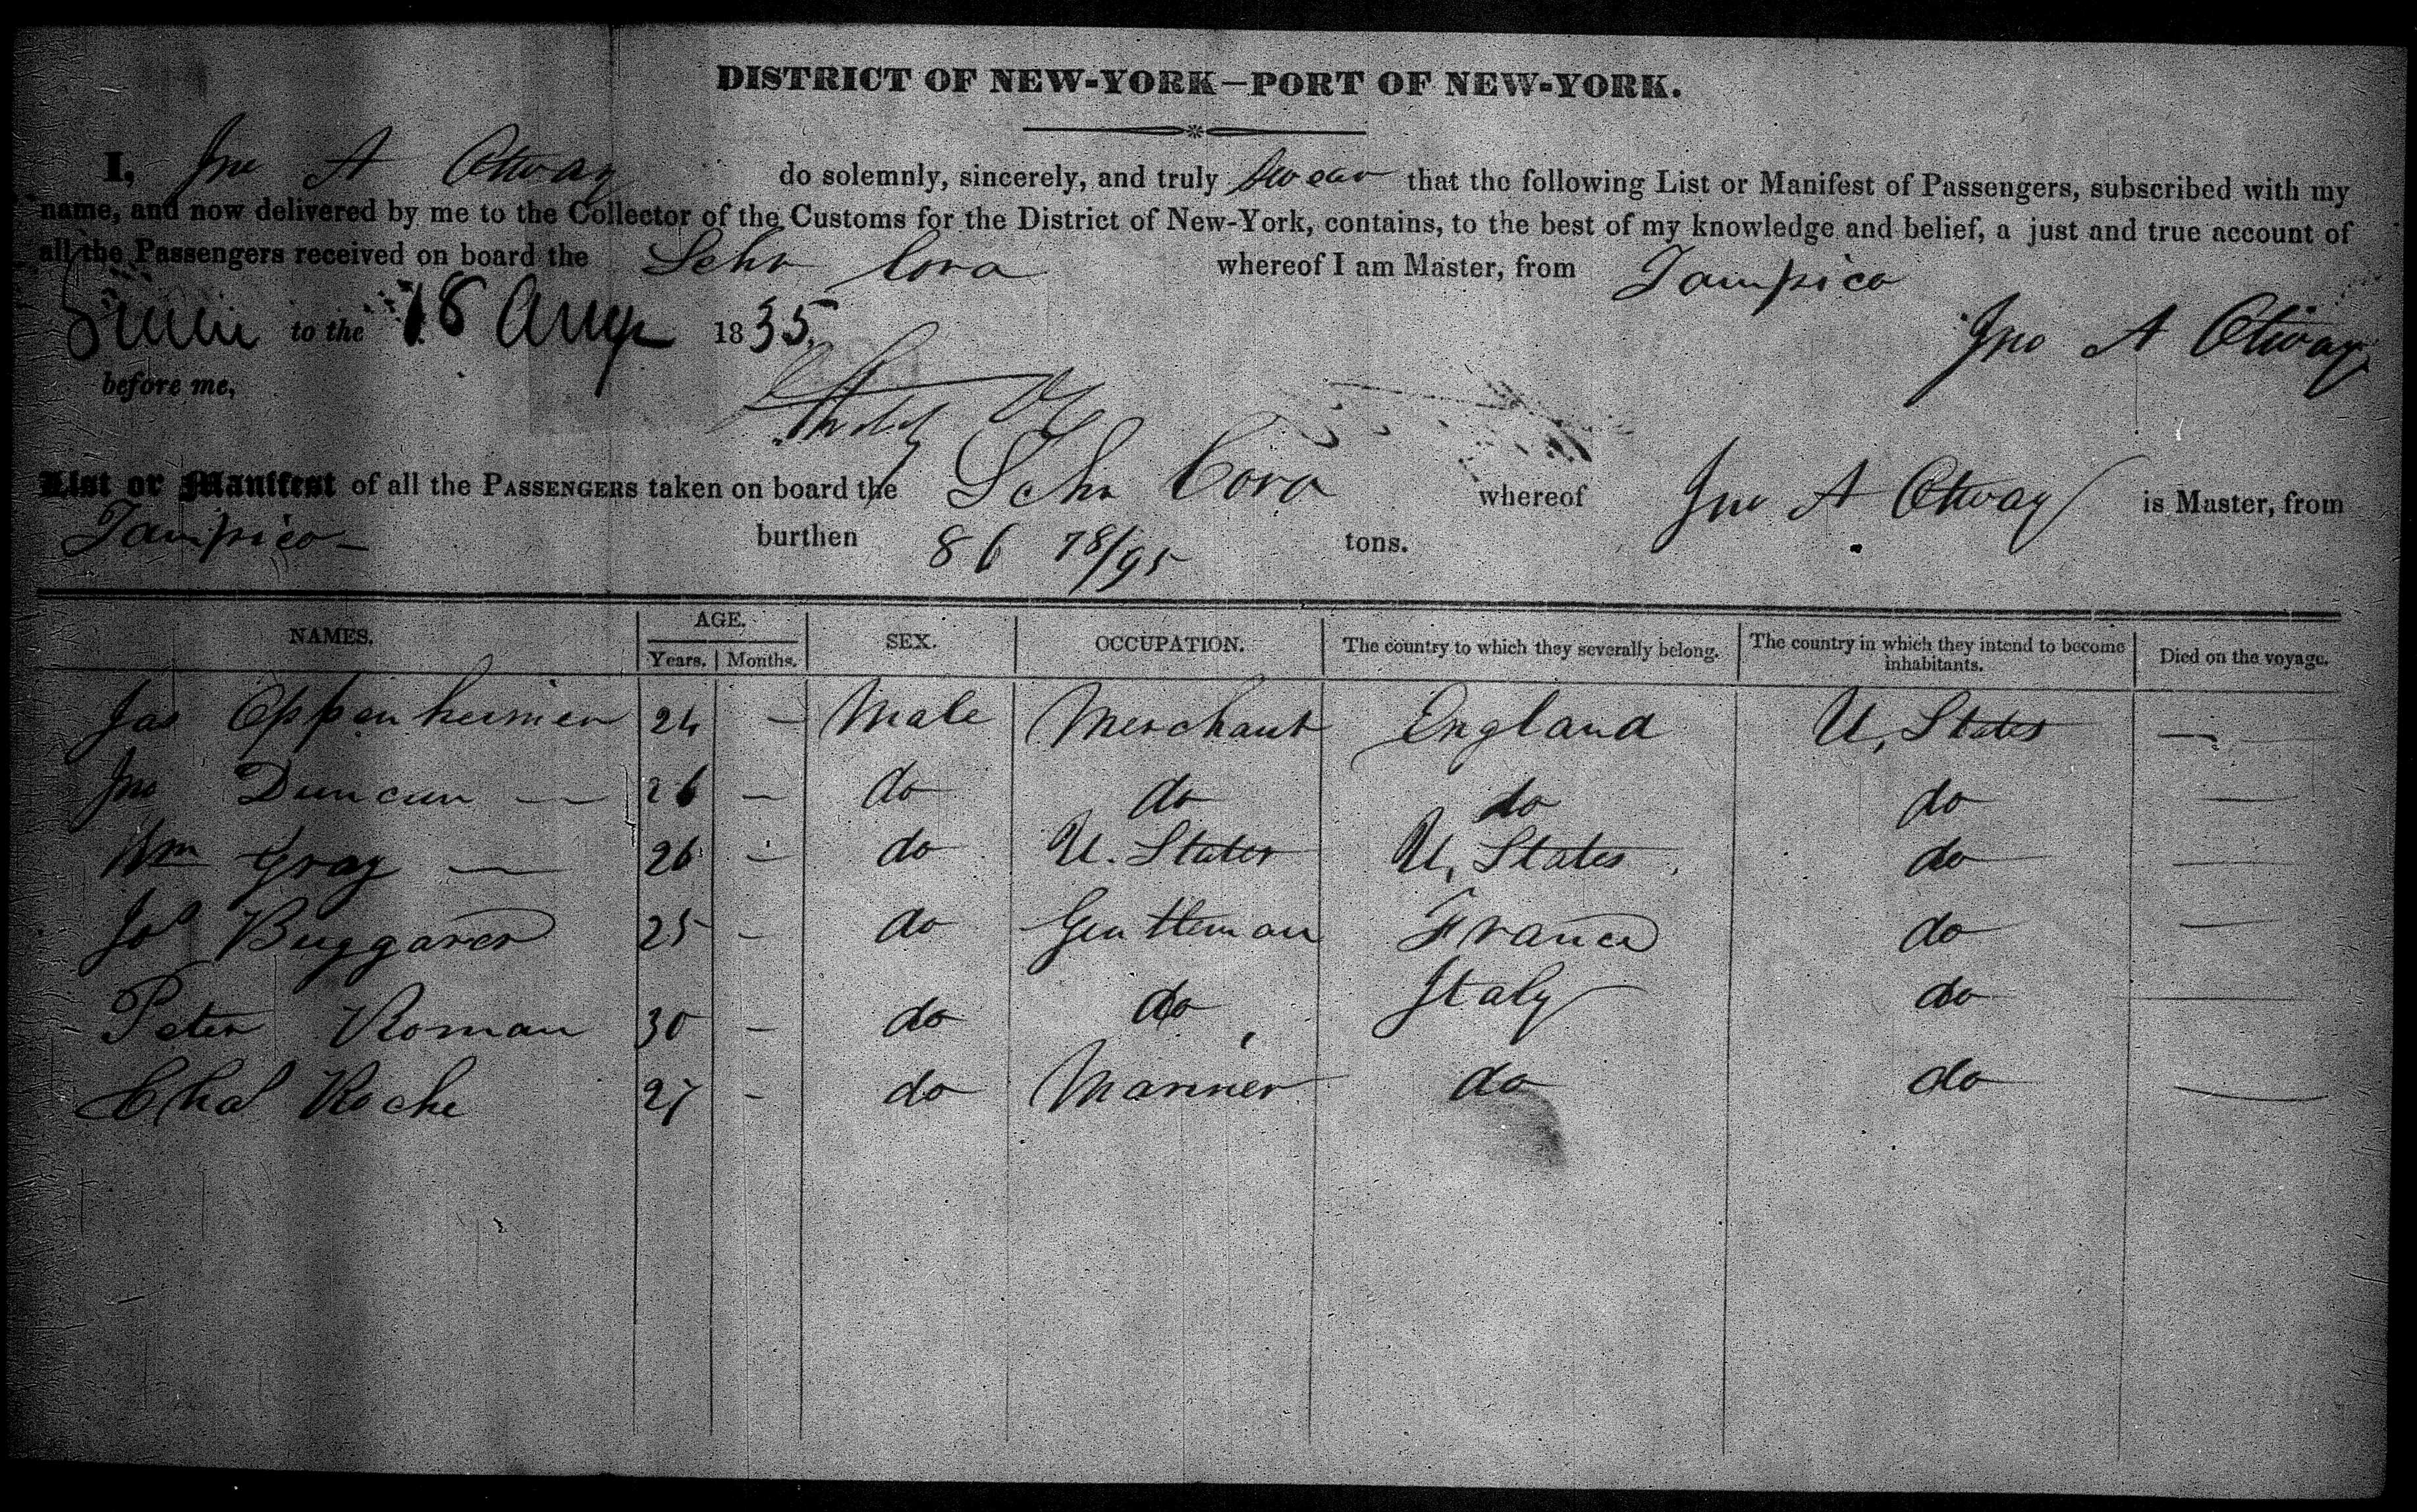 DISTRICT OF NEW-YORK—PORT OF NEW-YORK.
I, Jno A Otway do solemnly, sincerely, and truly swear that the following List or Manifest of Passengers, subscribed with my
name, and now delivered by me to the Collector of the Customs for the District of New-York, contains, to the best of my knowledge and belief, a just and true account of
all the Passengers received on board the Schr Cora whereof I am Master, from Tampico
to the 18 Aug 1835. Jno A Otway
before me,
List or Manifest of all the PASSENGERS taken on board the Schr Cora whereof Jno A Otway is Master, from
Tampico— burthen 86 78/95 tons.
NAMES. AGE. SEX. OCCUPATION. The country to which they severally belong. The country in which they intend to become inhabitants. Died on the voyage.
Years. Months.
Jas Oppenheimer 24 — Male Merchant England U, States —
Jno Duncan — 26 — do do do do —
Wm Gray — 26 — do U. States U, States do —
Jos Buggares 25 — do Gentleman France do —
Peter Roman 30 — do do Italy do —
Chas Roche 27 — do Mariner do do —